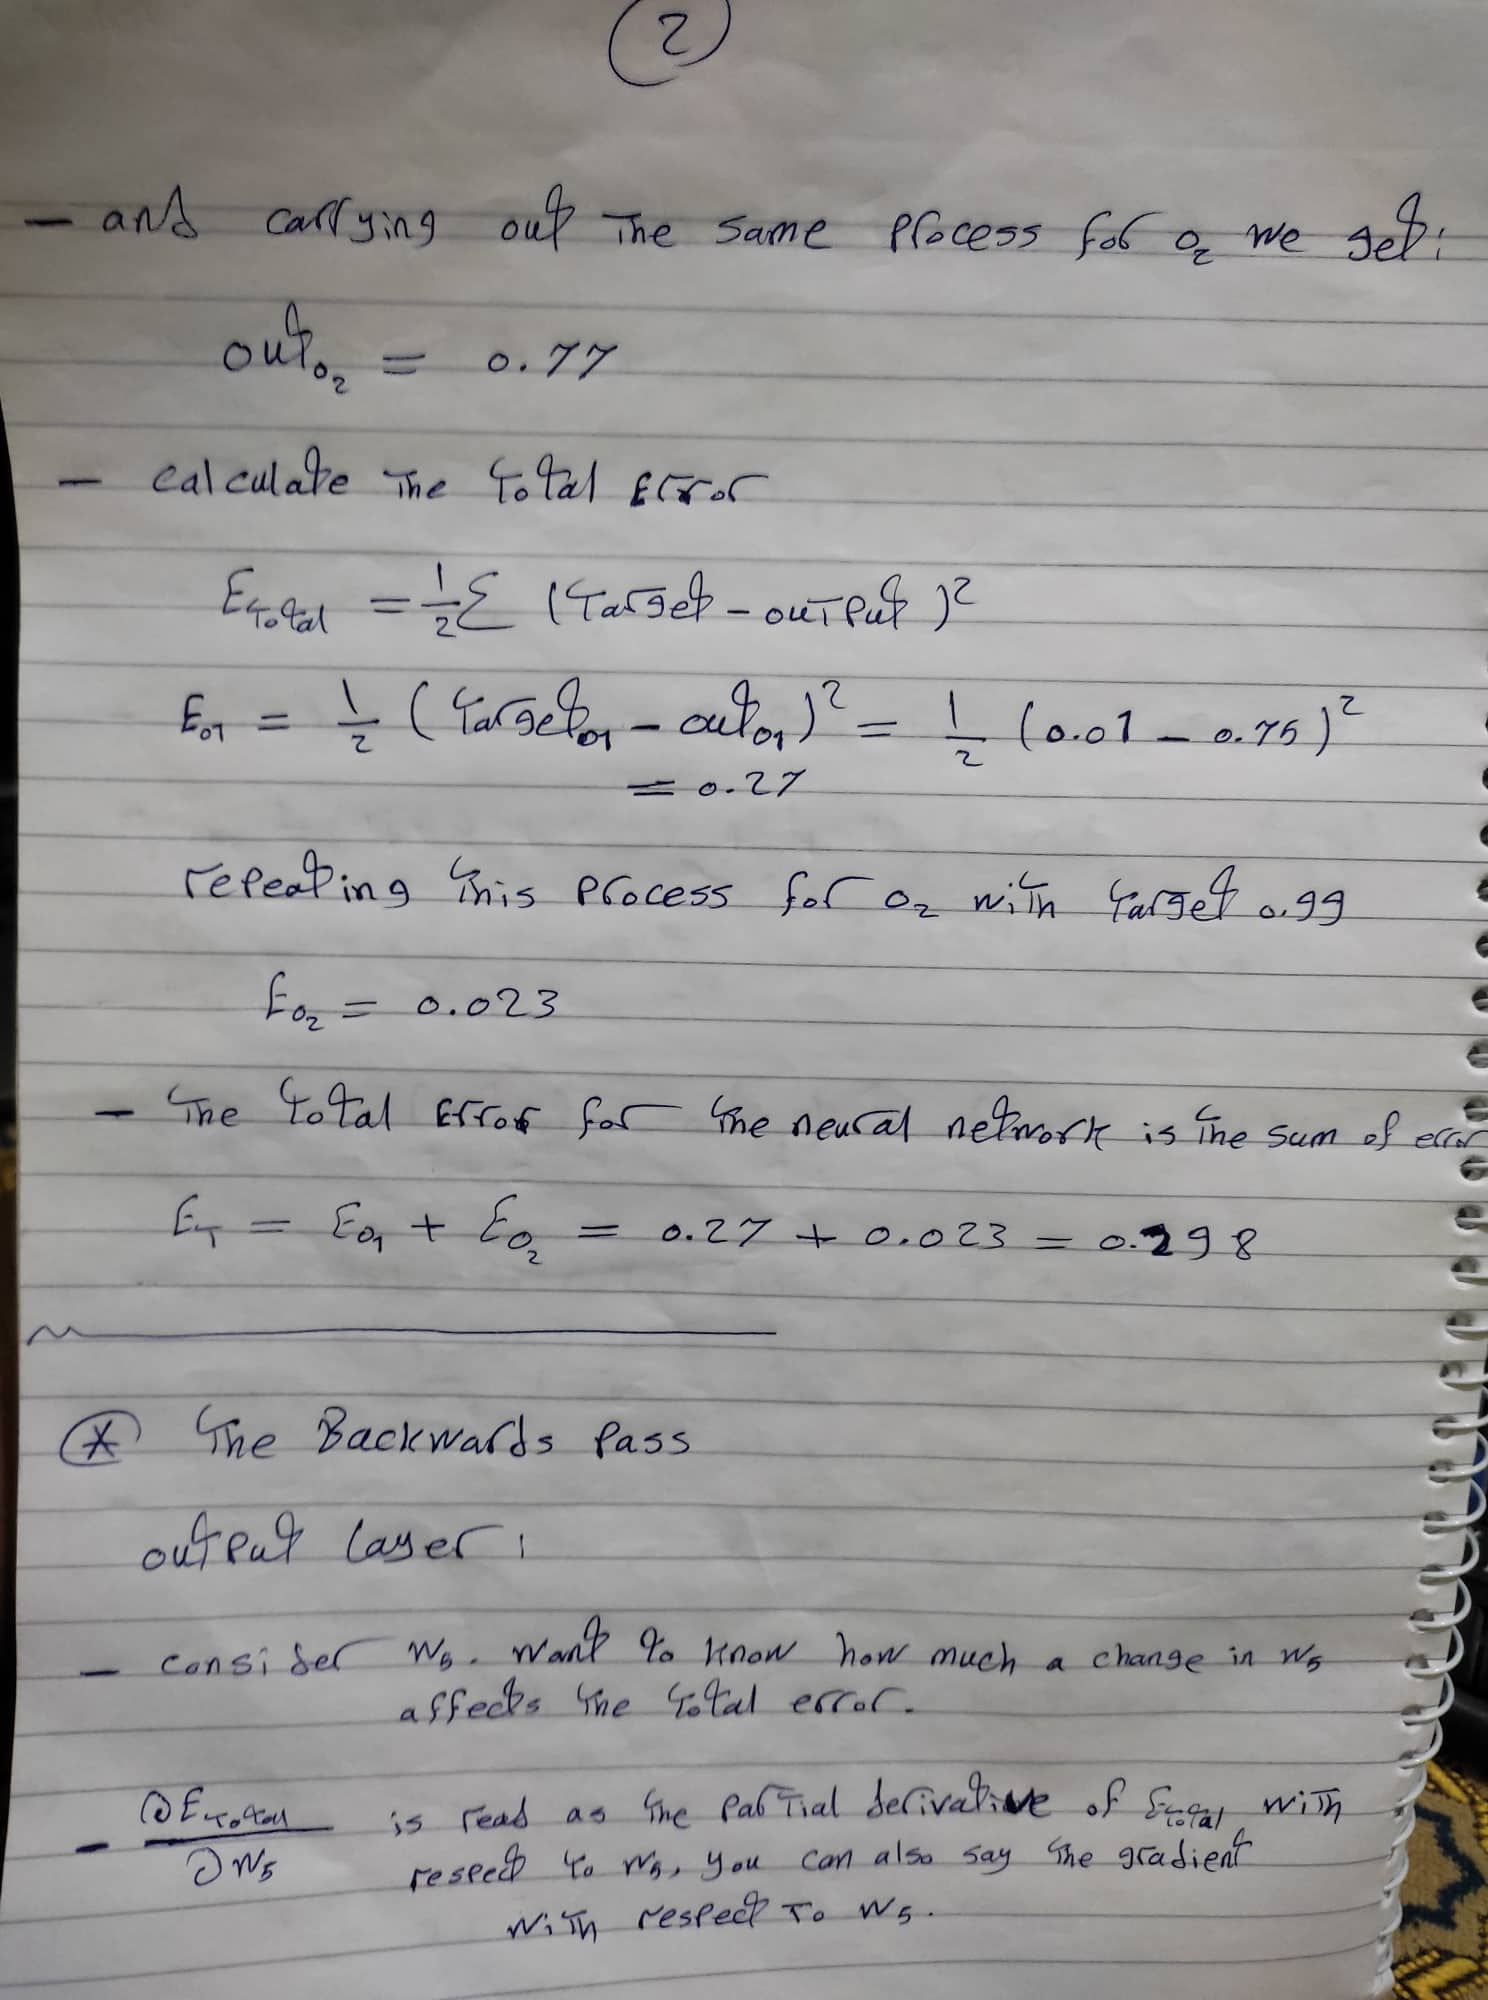 2
- and carrying out The same Process for o₂ we get:
out₀₂ = 0.77
- calculate The Total Error
E_Total = 1/2 Σ (Target - output)²
E₀₁ = 1/2 (Target₀₁ - out₀₁)² = 1/2 (0.01 - 0.75)²
= 0.27
repeating This Process for o₂ with Target 0.99
E₀₂ = 0.023
- The Total Error for The neural network is The sum of error
E_T = E₀₁ + E₀₂ = 0.27 + 0.023 = 0.298
* The Backwards Pass
output layer:
- consider W₅. want to know how much a change in W₅
affects The Total error.
- ∂E_Total / ∂W₅ is read as The Partial derivative of E_total with
respect To W₅, you can also say The gradient
with respect To W₅.